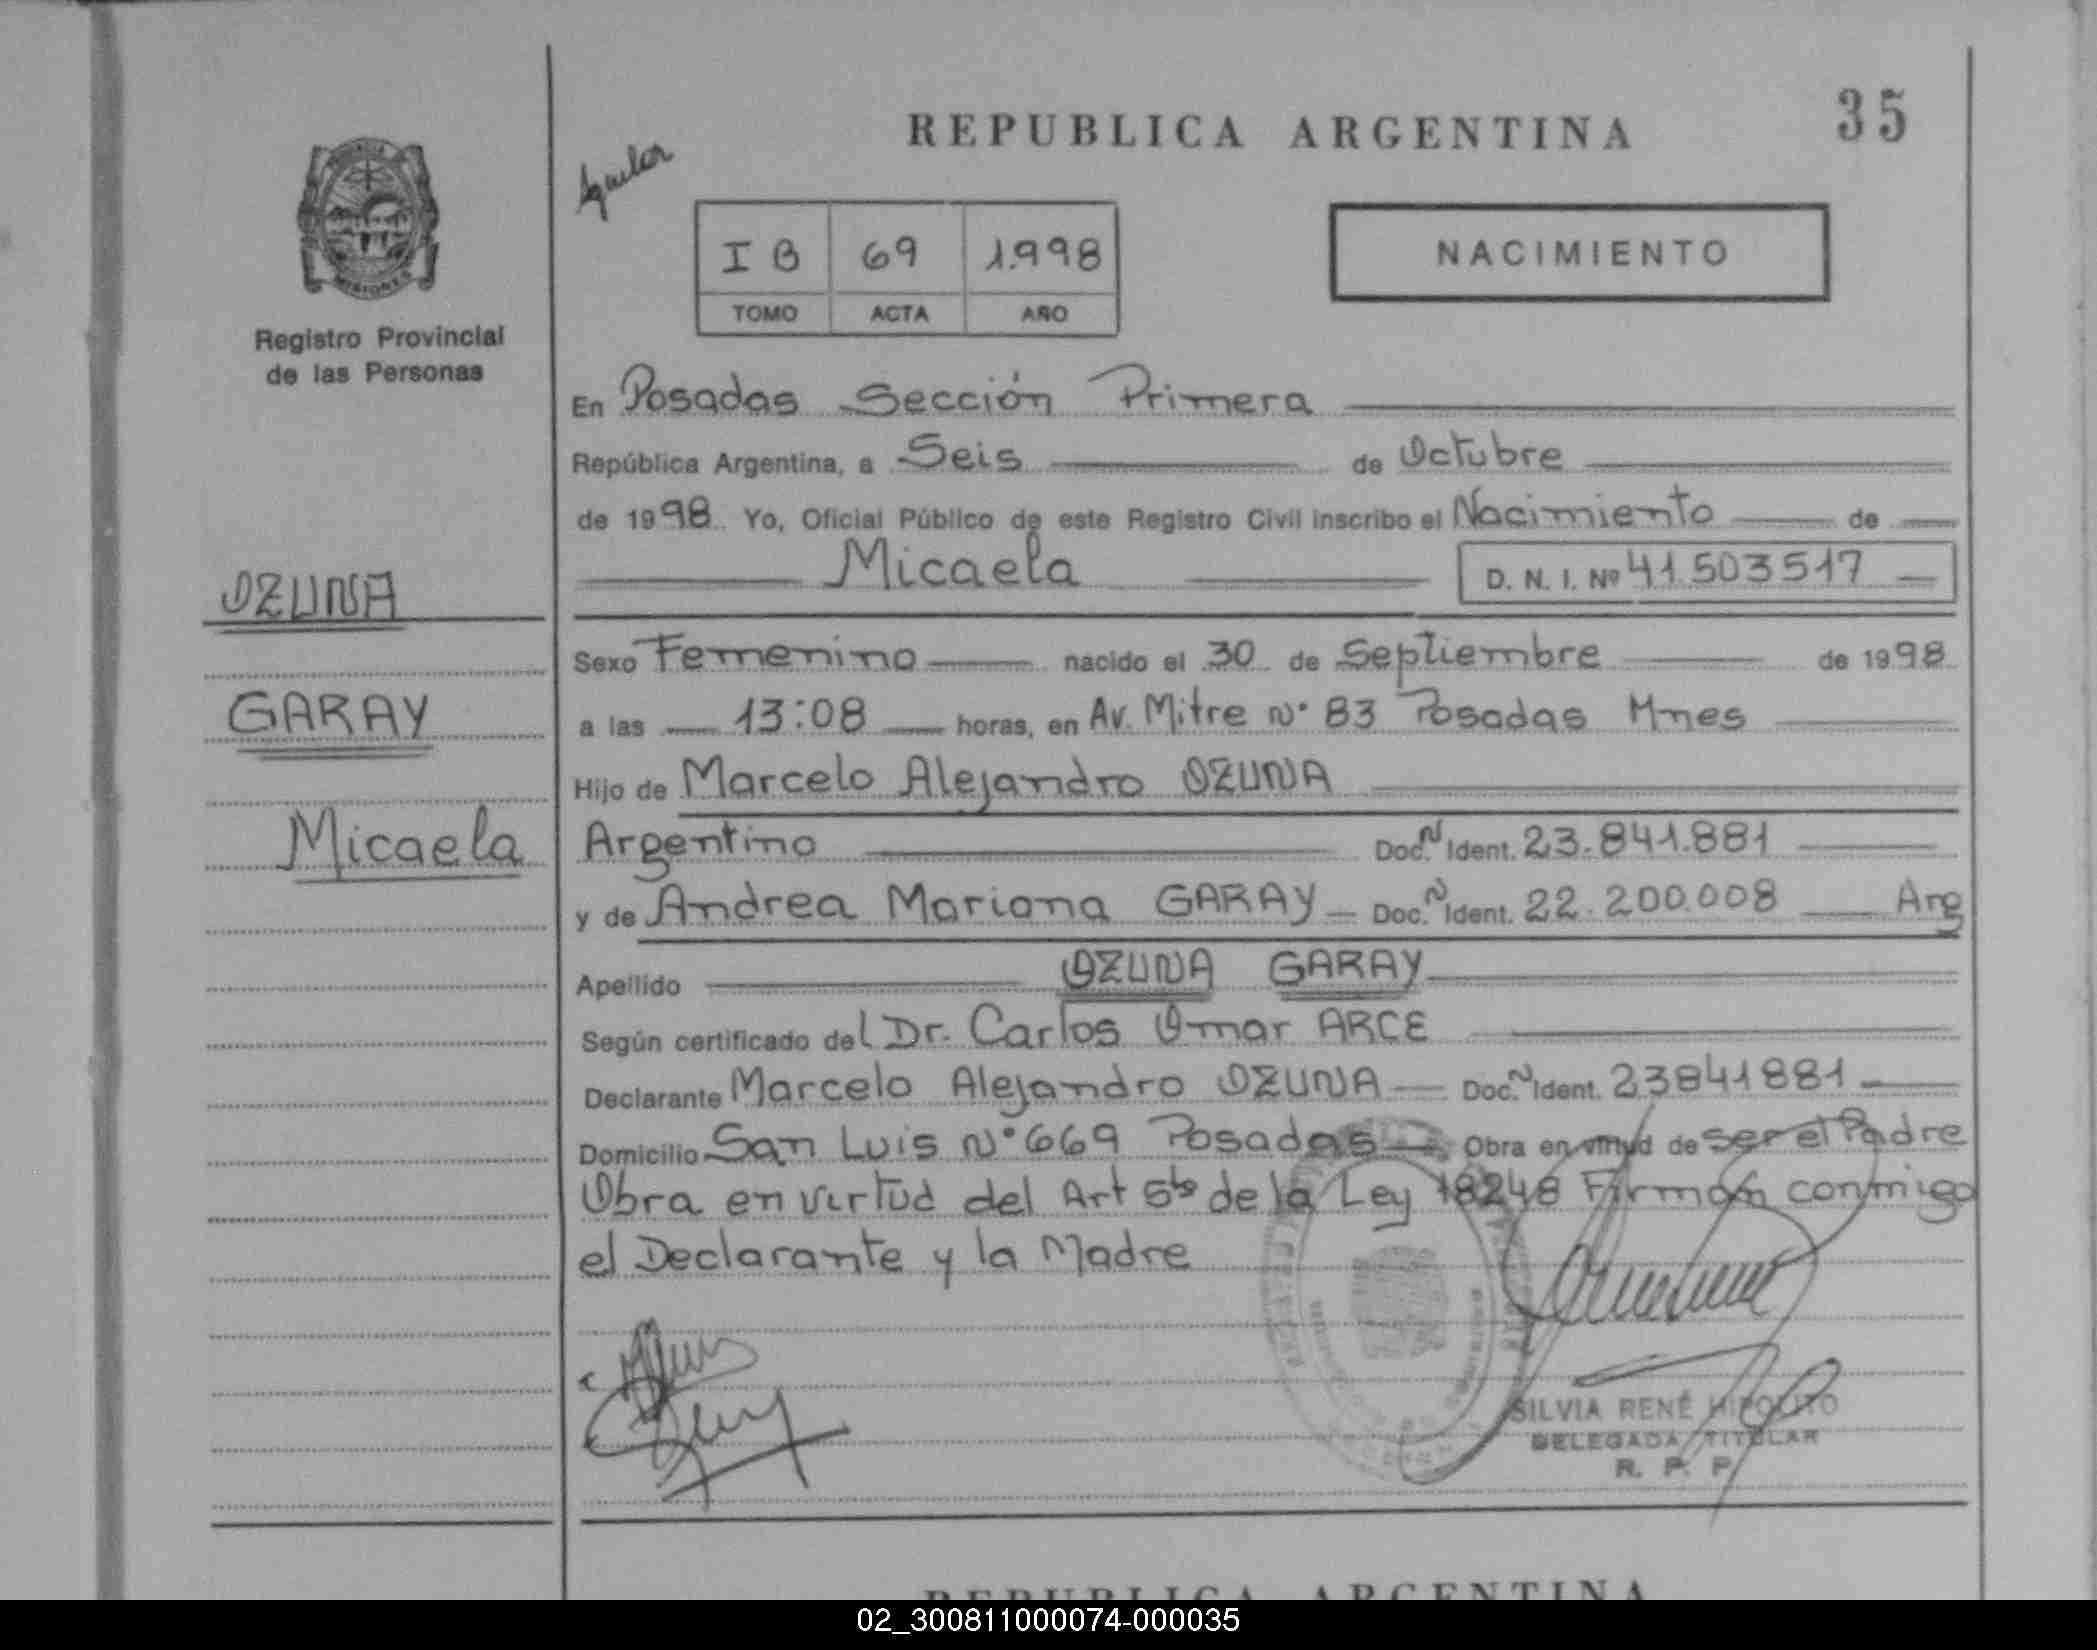 REPUBLICA ARGENTINA
35
Aguilar
I B 69 1.998
TOMO ACTA AÑO
NACIMIENTO
MISIONES
Registro Provincial
de las Personas
En Posadas Sección Primera
República Argentina, a Seis de Octubre
de 1998 Yo, Oficial Público de este Registro Civil inscribo el Nacimiento de
Micaela D. N. I. Nº 41.503517
OZUNA
Sexo Femenino nacido el 30 de Septiembre de 1998
GARAY
a las 13:08 horas, en Av. Mitre Nº 83 Posadas Mnes
Hijo de Marcelo Alejandro OZUNA
Micaela
Argentino Doc.N Ident. 23.841.881
y de Andrea Mariana GARAY Doc.N Ident. 22.200.008 Arg
Apellido OZUNA GARAY
Según certificado del Dr. Carlos Omar ARCE
Declarante Marcelo Alejandro OZUNA Doc.N Ident. 23841881
Domicilio San Luis Nº 669 Posadas Obra en virtud de ser el Padre
Obra en virtud del Art 5to de la Ley 18248 Firman conmigo
el Declarante y la Madre
SILVIA RENÉ HIPOLITO
DELEGADA TITULAR
R. P. P.
REPUBLICA ARGENTINA
02_300811000074-000035